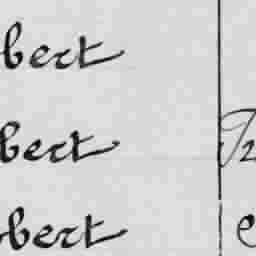 bert
bert
obert